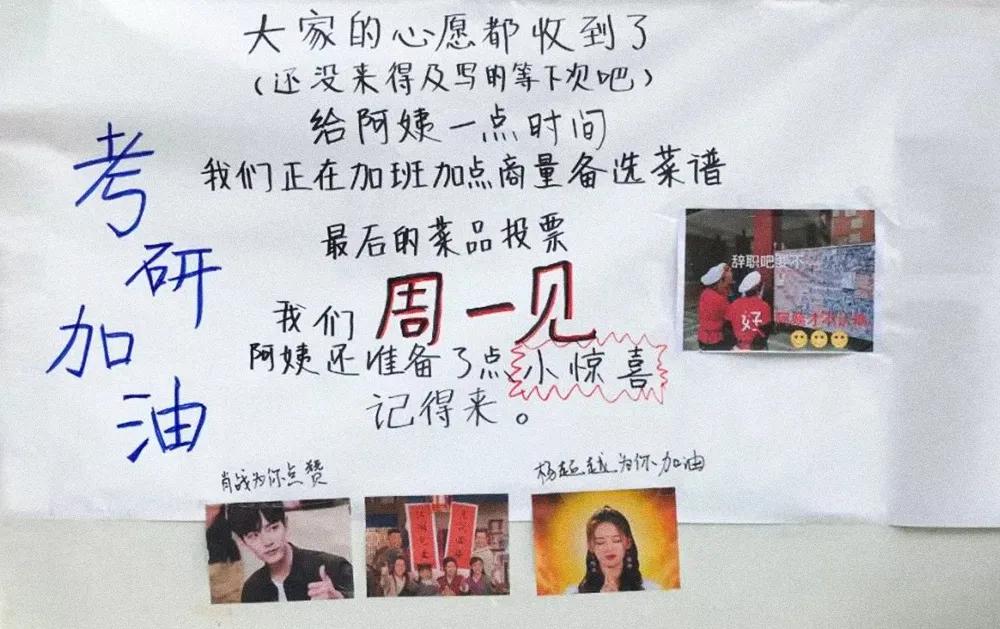 大家的心愿都收到了
（还没来得及写的等下次吧）
给阿姨一点时间
我们正在加班加点商量备选菜谱
最后的菜品投票
我们周一见
阿姨还准备了点小惊喜
记得来。
考研加油
辞职吧要不
好
肖战为你点赞
杨超越为你加油